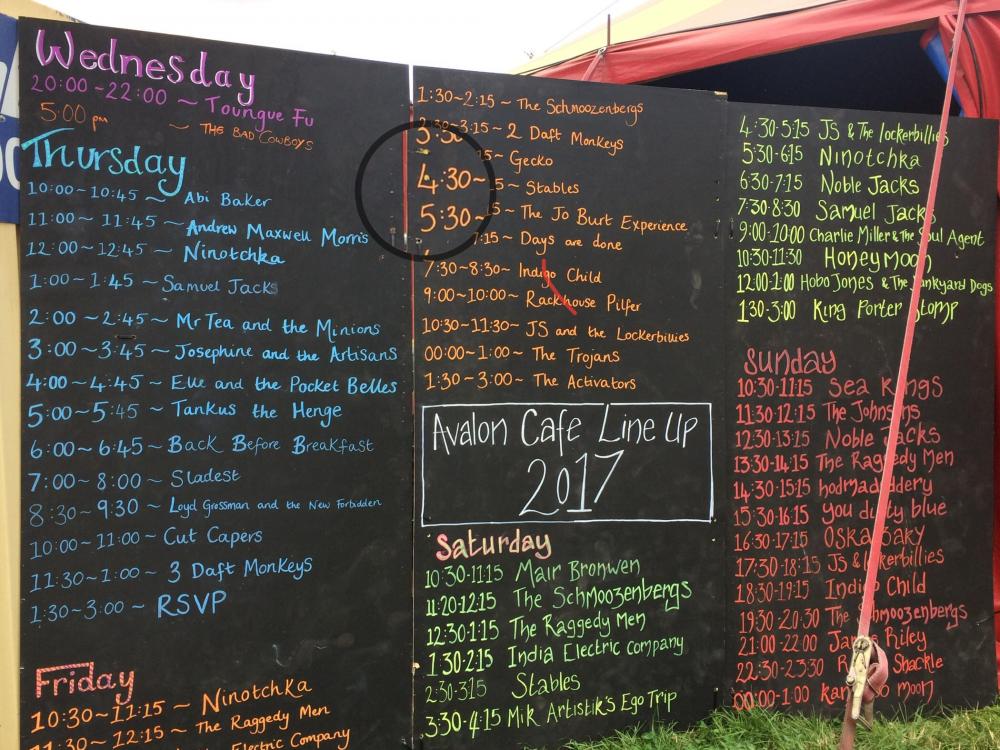 Wednesday
20:00~22:00 ~ Toungue Fu
5:00 pm ~ THE BAD COWBOYS
Thursday
10:00~10:45 ~ Abi Baker
11:00 ~ 11:45 ~ Andrew Maxwell Morris
12:00~12:45 ~ Ninotchka
1:00~1:45 ~ Samuel Jacks
2:00~2:45 ~ Mr Tea and the Minions
3:00~3:45 ~ Josephine and the Artisans
4:00~4:45 ~ Elle and the Pocket Belles
5:00~5:45 ~ Tankus the Henge
6:00~6:45 ~ Back Before Breakfast
7:00~8:00 ~ Sladest
8:30~9:30 ~ Loyd Grossman and the New Forbidden
10:00~11:00 ~ Cut Capers
11:30~1:00 ~ 3 Daft Monkeys
1:30~3:00 ~ RSVP
Friday
10:30~11:15 ~ Ninotchka
11:30~12:15 ~ The Raggedy Men
Electric Company
1:30~2:15 ~ The Schmoozenbergs
3:15 ~ 2 Daft Monkeys
3:30 15 ~ Gecko
4:30~ 5 ~ Stables
5:30~ 15 ~ The Jo Burt Experience
7:15 ~ Days are done
7:30~8:30~ Indigo Child
9:00~10:00~ Rackhouse Pilfer
10:30~11:30~ JS and the Lockerbillies
00:00~1:00~ The Trojans
1:30~3:00~ The Activators
Avalon Cafe Line Up
2017
Saturday
10:30-11:15 Mair Bronwen
11:20-12:15 The Schmoozenbergs
12:30-1:15 The Raggedy Men
1:30-2:15 India Electric company
2:30-3:15 Stables
3:30-4:15 Mik Artistik's Ego Trip
4:30-5:15 JS & The lockerbillies
5:30-6:15 Ninotchka
6:30-7:15 Noble Jacks
7:30-8:30 Samuel Jacks
9:00-10:00 Charlie Miller & The Soul Agent
10:30-11:30 Honey Moon
12:00-1:00 Hobo Jones & The Junkyard Dogs
1:30-3:00 King Porter Stomp
Sunday
10:30-11:15 Sea Kings
11:30-12:15 The Johnsons
12:30-13:15 Noble Jacks
13:30-14:15 The Raggedy Men
14:30-15:15 hodmadoddery
15:30-16:15 you dirty blue
16:30-17:15 Oska Baky
17:30-18:15 JS & Lockerbillies
18:30-19:15 Indigo Child
19:30-20:30 The Schmoozenbergs
21:00-22:00 James Riley
22:30-23:30 Shackle
00:00-1:00 moon